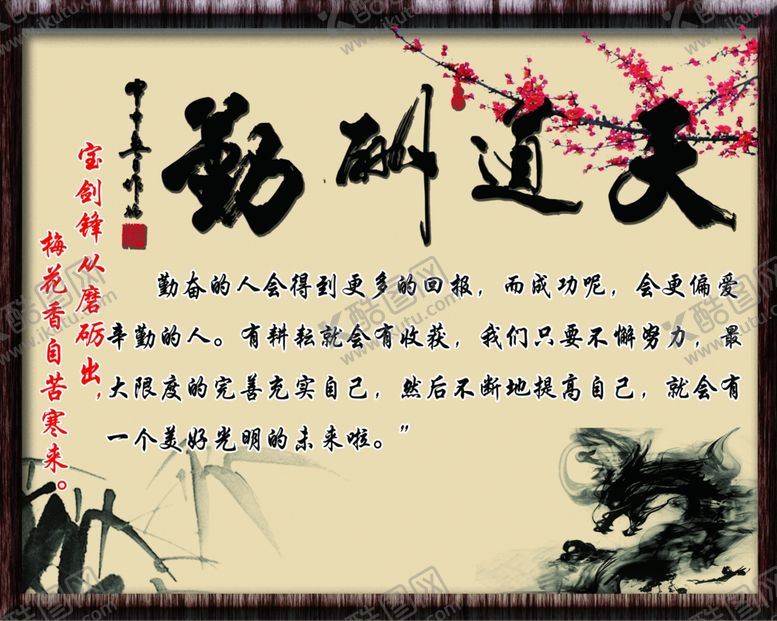 天道酬勤
宝剑锋从磨砺出，
梅花香自苦寒来。
勤奋的人会得到更多的回报，而成功呢，会更偏爱
辛勤的人。有耕耘就会有收获，我们只要不懈努力，最
大限度的完善充实自己，然后不断地提高自己，就会有
一个美好光明的未来啦。”
酷图网
www.ikutu.com